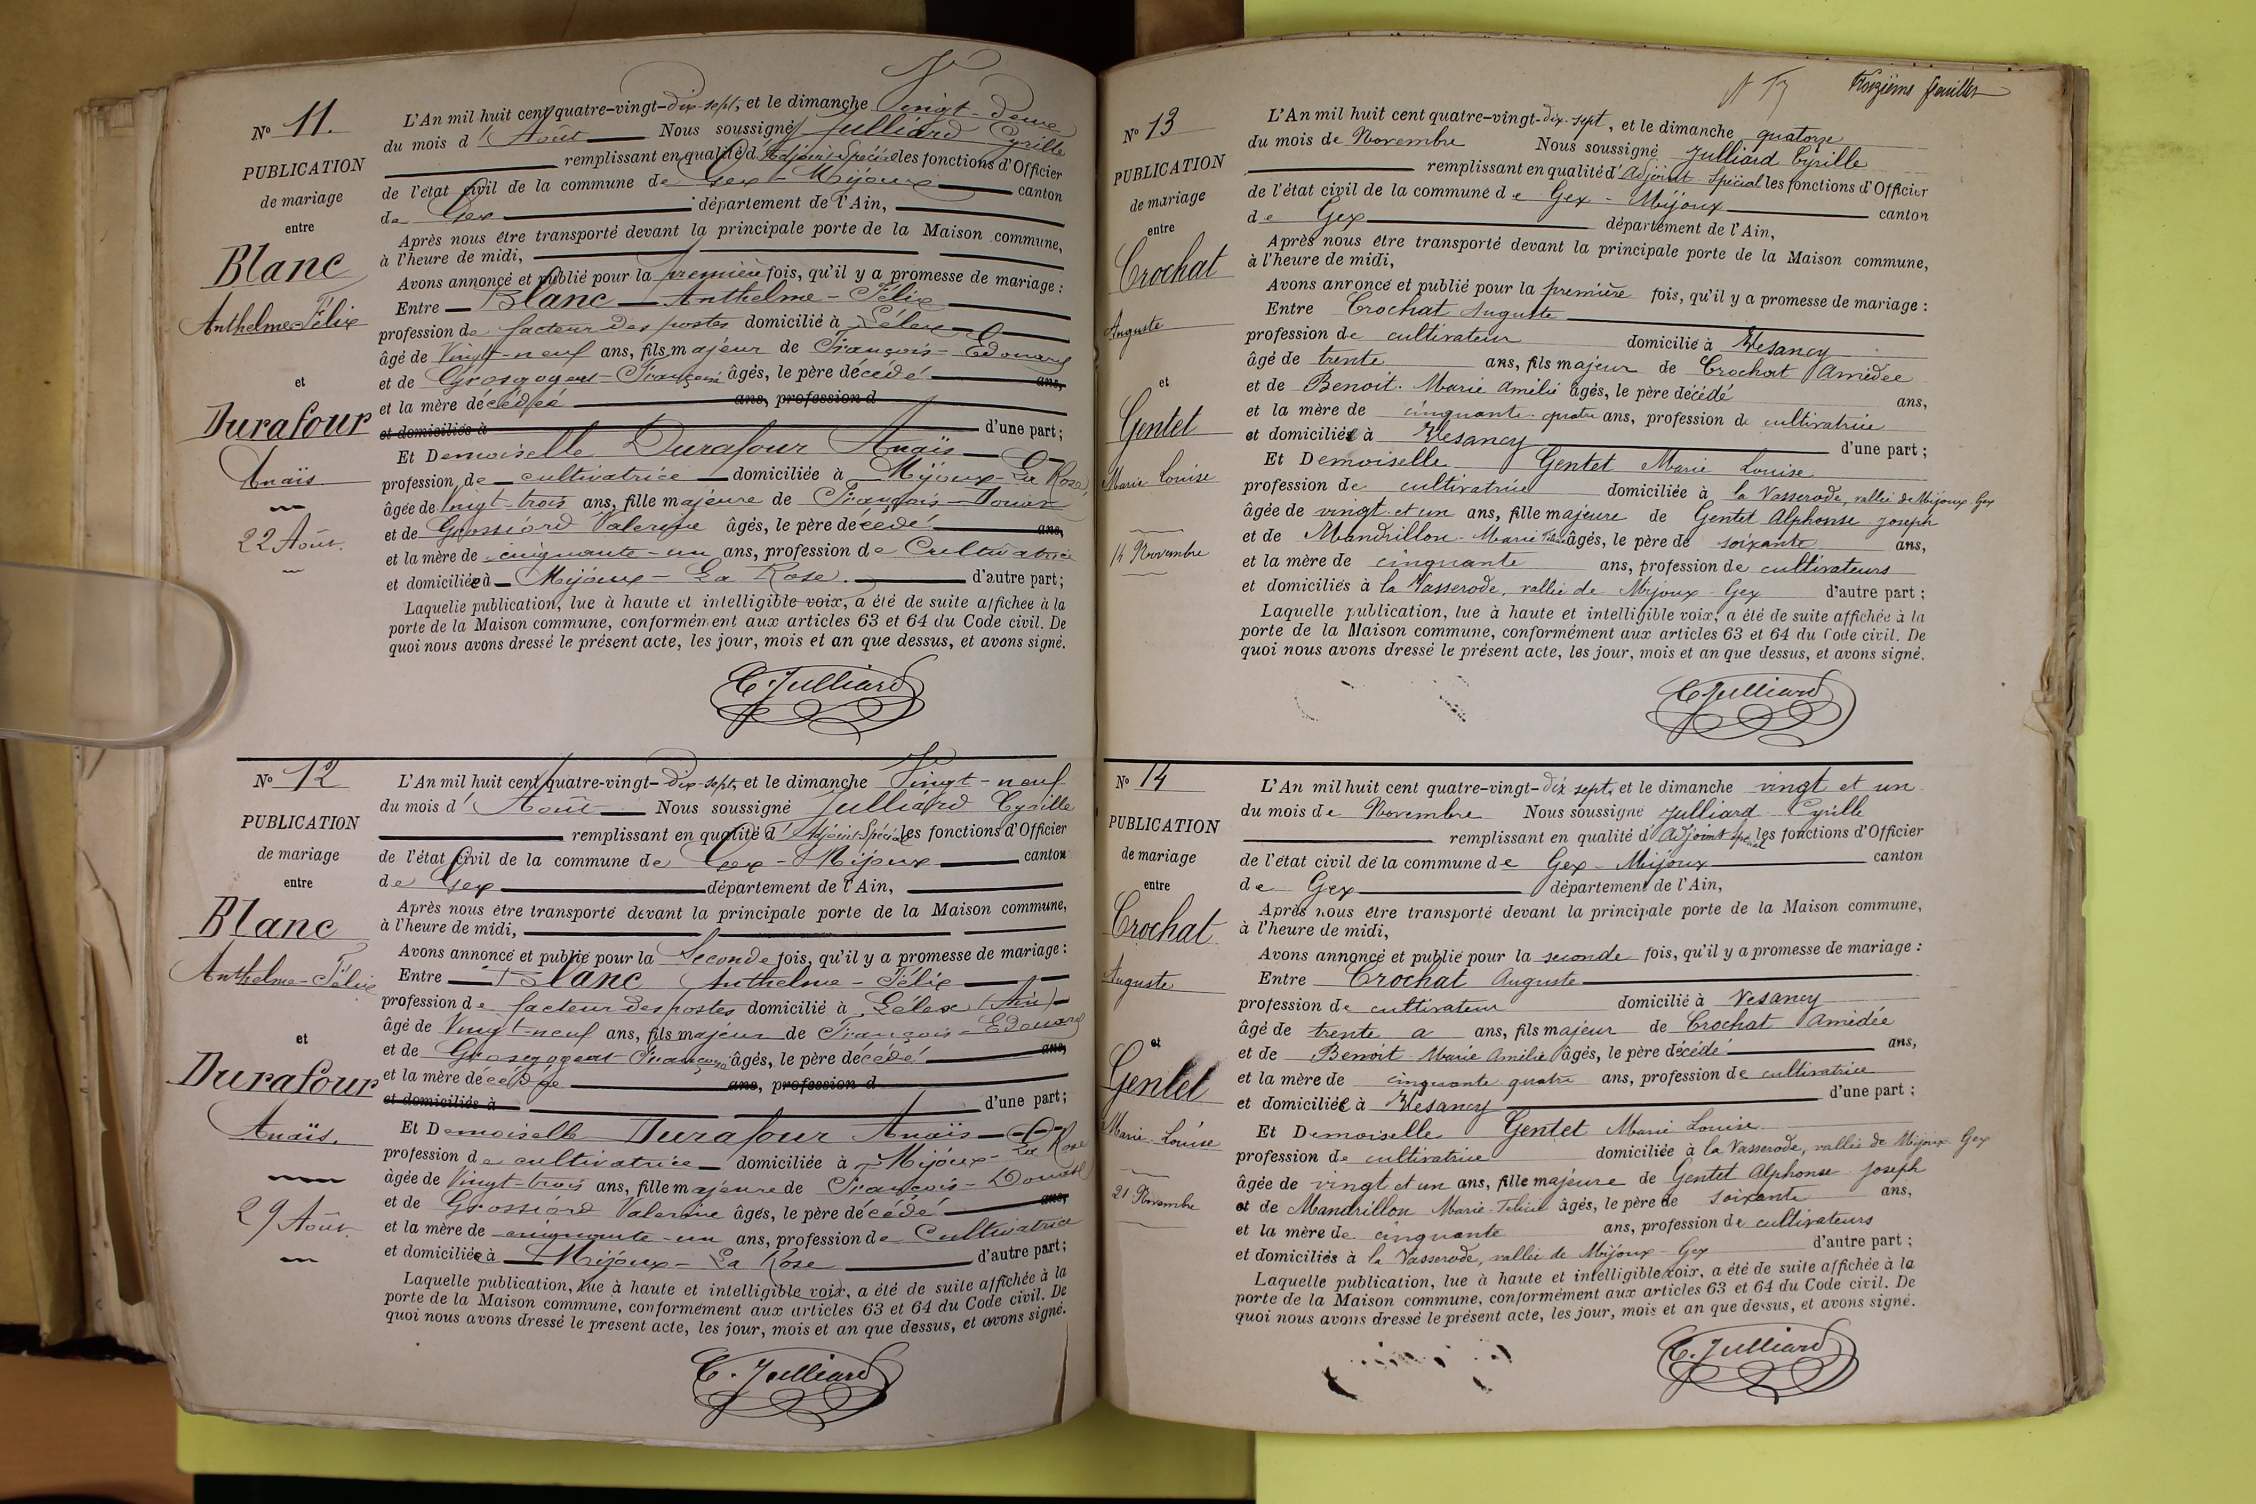 Nº 11.
PUBLICATION
de mariage
entre
Blanc
Anthelme-Félix
et
Durafour
Anaïs
22 Août.
L'An mil huit cent quatre-vingt-dix-sept, et le dimanche Vingt-deux
du mois d'Août Nous soussigné Julliard Cyrille
remplissant en qualité d'Adjoint Spécial les fonctions d'Officier
de l'état civil de la commune de Gex-Mijoux canton
de Gex département de l'Ain,
Après nous être transporté devant la principale porte de la Maison commune,
à l'heure de midi,
Avons annoncé et publié pour la première fois, qu'il y a promesse de mariage :
Entre Blanc Anthelme-Félix
profession de facteur des postes domicilié à Lélex
âgé de Vingt-neuf ans, fils majeur de François-Edouard
et de Grosgogeat-Françoise âgés, le père décédé ans,
et la mère décédée ans, profession d
et domiciliés à d'une part;
Et Demoiselle Durafour Anaïs
profession de cultivatrice domiciliée à Mijoux-La Rose,
âgée de Vingt-trois ans, fille majeure de François-Donat
et de Grossiord Valerine âgés, le père décédé ans,
et la mère de cinquante-un ans, profession de Cultivatrice
et domiciliée à Mijoux-La Rose. d'autre part;
Laquelle publication, lue à haute et intelligible voix, a été de suite affichée à la
porte de la Maison commune, conformément aux articles 63 et 64 du Code civil. De
quoi nous avons dressé le présent acte, les jour, mois et an que dessus, et avons signé.
C. Julliard
Nº 12
PUBLICATION
de mariage
entre
Blanc
Anthelme-Félix
et
Durafour
Anaïs.
29 Août.
L'An mil huit cent quatre-vingt-dix-sept, et le dimanche Vingt-neuf
du mois d'Août Nous soussigné Julliard Cyrille
remplissant en qualité d'Adjoint Spécial les fonctions d'Officier
de l'état civil de la commune de Gex-Mijoux canton
de Gex département de l'Ain,
Après nous être transporté devant la principale porte de la Maison commune,
à l'heure de midi,
Avons annoncé et publié pour la Seconde fois, qu'il y a promesse de mariage :
Entre Blanc Anthelme-Félix
profession de facteur des postes domicilié à Lélex (Ain)
âgé de Vingt-neuf ans, fils majeur de François-Edouard
et de Grosgogeat Françoise âgés, le père décédé ans,
et la mère décédée ans, profession d
et domiciliés à d'une part;
Et Demoiselle Durafour Anaïs
profession de cultivatrice domiciliée à Mijoux-La Rose
âgée de Vingt-trois ans, fille majeure de François-Donat
et de Grossiord Valerine âgés, le père décédé ans,
et la mère de cinquante-un ans, profession de Cultivatrice
et domiciliée à Mijoux-La Rose d'autre part;
Laquelle publication, lue à haute et intelligible voix, a été de suite affichée à la
porte de la Maison commune, conformément aux articles 63 et 64 du Code civil. De
quoi nous avons dressé le présent acte, les jour, mois et an que dessus, et avons signé.
C. Julliard
Troizième feuillet
Nº 13
PUBLICATION
de mariage
entre
Crochat
Auguste
et
Gentet
Marie Louise
14 Novembre
L'An mil huit cent quatre-vingt-dix-sept, et le dimanche quatorze
du mois de Novembre Nous soussigné Julliard Cyrille
remplissant en qualité d'Adjoint Spécial les fonctions d'Officier
de l'état civil de la commune de Gex-Mijoux canton
de Gex département de l'Ain,
Après nous être transporté devant la principale porte de la Maison commune,
à l'heure de midi,
Avons annoncé et publié pour la première fois, qu'il y a promesse de mariage :
Entre Crochat Auguste
profession de cultivateur domicilié à Vesancy
âgé de trente ans, fils majeur de Crochat Amédée
et de Benoit-Marie Amélie âgés, le père décédé ans,
et la mère de cinquante-quatre ans, profession de cultivatrice
et domiciliée à Vesancy d'une part;
Et Demoiselle Gentet Marie Louise
profession de cultivatrice domiciliée à la Vasserode, vallée de Mijoux-Gex
âgée de vingt et un ans, fille majeure de Gentet Alphonse Joseph
et de Mandrillon-Marie Félicie âgés, le père de soixante ans,
et la mère de cinquante ans, profession de cultivateurs
et domiciliés à la Vasserode, vallée de Mijoux-Gex d'autre part;
Laquelle publication, lue à haute et intelligible voix, a été de suite affichée à la
porte de la Maison commune, conformément aux articles 63 et 64 du Code civil. De
quoi nous avons dressé le présent acte, les jour, mois et an que dessus, et avons signé.
C. Julliard
Nº 14
PUBLICATION
de mariage
entre
Crochat
Auguste
et
Gentet
Marie-Louise
21 Novembre
L'An mil huit cent quatre-vingt-dix sept, et le dimanche vingt et un
du mois de Novembre Nous soussigné Julliard Cyrille
remplissant en qualité d'Adjoint spécial les fonctions d'Officier
de l'état civil de la commune de Gex-Mijoux canton
de Gex département de l'Ain,
Après nous être transporté devant la principale porte de la Maison commune,
à l'heure de midi,
Avons annoncé et publié pour la seconde fois, qu'il y a promesse de mariage :
Entre Crochat Auguste
profession de cultivateur domicilié à Vesancy
âgé de trente a ans, fils majeur de Crochat Amédée
et de Benoit-Marie Amélie âgés, le père décédé ans,
et la mère de cinquante quatre ans, profession de cultivatrice
et domiciliée à Vesancy d'une part;
Et Demoiselle Gentet Marie Louise
profession de cultivatrice domiciliée à la Vasserode, vallée de Mijoux-Gex
âgée de vingt et un ans, fille majeure de Gentet Alphonse Joseph
et de Mandrillon Marie-Félicie âgés, le père de soixante ans,
et la mère de cinquante ans, profession de cultivateurs
et domiciliés à la Vasserode, vallée de Mijoux-Gex d'autre part;
Laquelle publication, lue à haute et intelligible voix, a été de suite affichée à la
porte de la Maison commune, conformément aux articles 63 et 64 du Code civil. De
quoi nous avons dressé le présent acte, les jour, mois et an que dessus, et avons signé.
C. Julliard